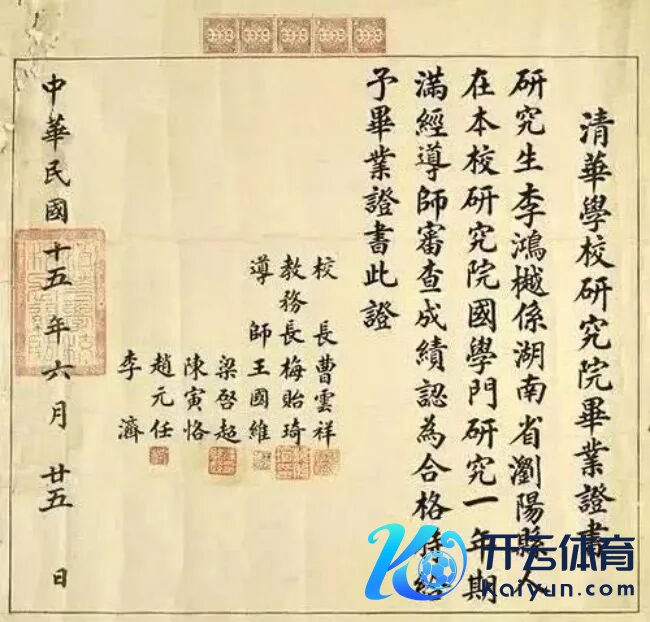 清華學校研究院畢業證書
研究生李鴻樾係湖南省瀏陽縣人
在本校研究院國學門研究一年期
滿經導師審查成績認為合格特給
予畢業證書此證
校長曹雲祥
教務長梅貽琦
導師王國維
梁啓超
陳寅恪
趙元任
李濟
中華民國十五年六月廿五日
开云体育
Kaiyun.com